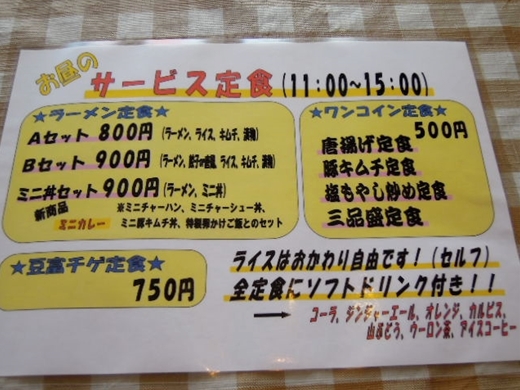 お昼の
サービス定食(11:00~15:00)
★ラーメン定食★
Aセット 800円 (ラーメン、ライス、キムチ、漬物)
Bセット 900円 (ラーメン、餃子or春巻、ライス、キムチ、漬物)
ミニ丼セット 900円 (ラーメン、ミニ丼)
新商品
ミニカレー
※ミニチャーハン、ミニチャーシュー丼、
ミニ豚キムチ丼、特製卵かけご飯とのセット
★ワンコイン定食★
500円
唐揚げ定食
豚キムチ定食
塩もやし炒め定食
三品盛定食
★豆富チゲ定食★
750円
ライスはおかわり自由です!(セルフ)
全定食にソフトドリンク付き!!
→ コーラ、ジンジャーエール、オレンジ、カルピス、
山ぶどう、ウーロン茶、アイスコーヒー